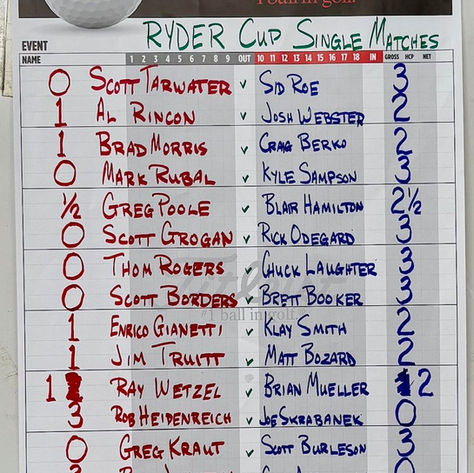 1 ball in golf.
RYDER CUP SINGLE MATCHES
EVENT
NAME 1 2 3 4 5 6 7 8 9 OUT 10 11 12 13 14 15 16 17 18 IN GROSS HCP NET
0 SCOTT TARWATER ✓ SID ROE 3
1 AL RINCON ✓ JOSH WEBSTER 2
1 BRAD MORRIS ✓ CRAIG BERKO 2
0 MARK RUBAL ✓ KYLE SAMPSON 3
1/2 GREG POOLE ✓ BLAIR HAMILTON 2 1/2
0 SCOTT GROGAN ✓ RICK ODEGARD 3
0 THOM ROGERS ✓ CHUCK LAUGHTER 3
0 SCOTT BORDERS ✓ BRETT BOOKER 3
#1 ball in golf.
1 ENRICO GIANETTI ✓ KLAY SMITH 2
1 JIM TRUITT ✓ MATT BOZARD 2
1 RAY WETZEL ✓ BRIAN MUELLER 2
3 ROB HEIDENREICH ✓ JOE SKRABANEK 0
0 GREG KRAUT ✓ SCOTT BURLESON 3